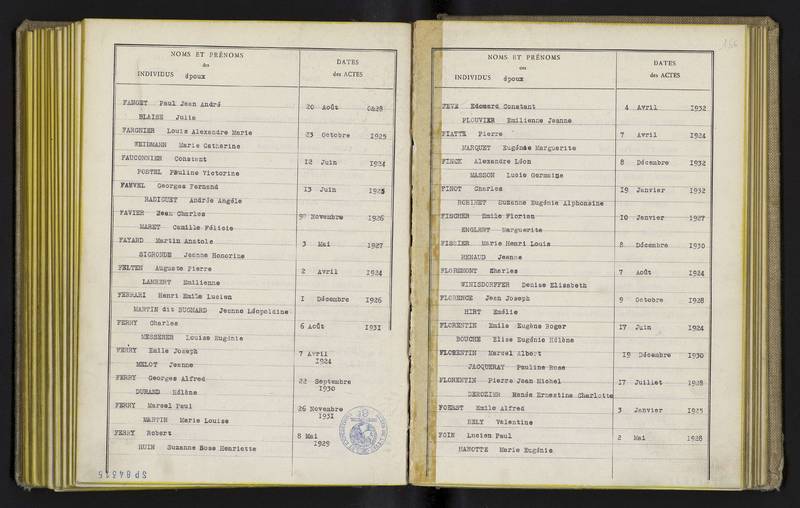 NOMS ET PRÉNOMS
des
INDIVIDUS époux
DATES
des ACTES
FAMGET Paul Jean André 20 Août
BLAISE Julie
FARGNIER Louis Alexandre Marie 23 Octobre 1925
WEIDMANN Marie Catherine
FAUCONNIER Constant 12 Juin 1924
POSTEL Pauline Victorine
FAUVEL Georges Fernand 13 Juin 1925
RADIGUET Andrée Angèle
FAVIER Jean Charles Novembre 1926
MARET Camille Félicie
FAYARD Martin Anatole 3 Mai 1927
SIGRONDE Jeanne Honorine
FELTEN Auguste Pierre 2 Avril 1924
LAMBERT Emilienne
FERRARI Henri Emile Lucien I Décembre 1926
MARTIN dit BUGNARD Jeanne Léopoldine
FERRY Charles 6 Août 1931
MESSERER Louise Eugénie
FERRY Emile Joseph 7 Avril
1924
MELOT Jeanne
FERRY Georges Alfred 22 Septembre
1930
DURAND Hélène
FERRY Marcel Paul 26 Novembre
1931
MARTIN Marie Louise
FERRY Robert 8 Mai
1929
HUIN Suzanne Rose Henriette
SP84315
166
NOMS ET PRÉNOMS
des
INDIVIDUS époux
DATES
des ACTES
FEVE Edouard Constant 4 Avril 1932
PLOUVIER Emilienne Jeanne
FIATTE Pierre 7 Avril 1924
MARQUET Eugénie Marguerite
FINCK Alexandre Léon 8 Décembre 1932
MASSON Lucie Germaine
FINOT Charles 19 Janvier 1932
ROBINET Suzanne Eugénie Alphonsine
FISCHER Emile Florian 10 Janvier 1927
ENGLERT Marguerite
FISSIER Marie Henri Louis 2 Décembre 1930
RENAUD Jeanne
FLOREMONT Charles 7 Août 1924
WINISDORFFER Denise Elisabeth
FLORENCE Jean Joseph 9 Octobre 1928
HIRT Emélie
FLORENTIN Emile Eugène Roger 17 Juin 1924
BOUCHE Elise Eugénie Hélène
FLORENTIN Marcel Albert 19 Décembre 1930
JACQUERAY Pauline Rose
FLORENTIN Pierre Jean Michel 17 Juillet 1928
DEROZIER Renée Ernestine Charlotte
FOERST Emile Alfred 3 Janvier 1925
RELY Valentine
FOIN Lucien Paul 2 Mai 1928
HANOTTE Marie Eugénie